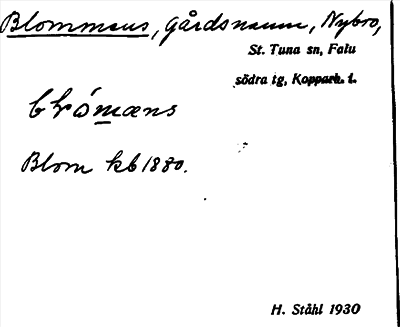 Blommens, gårdsnamn, Nybro,
St. Tuna sn, Falu
södra tg, Kopparb. l.
Blom kb 1880.
H. Ståhl 1930